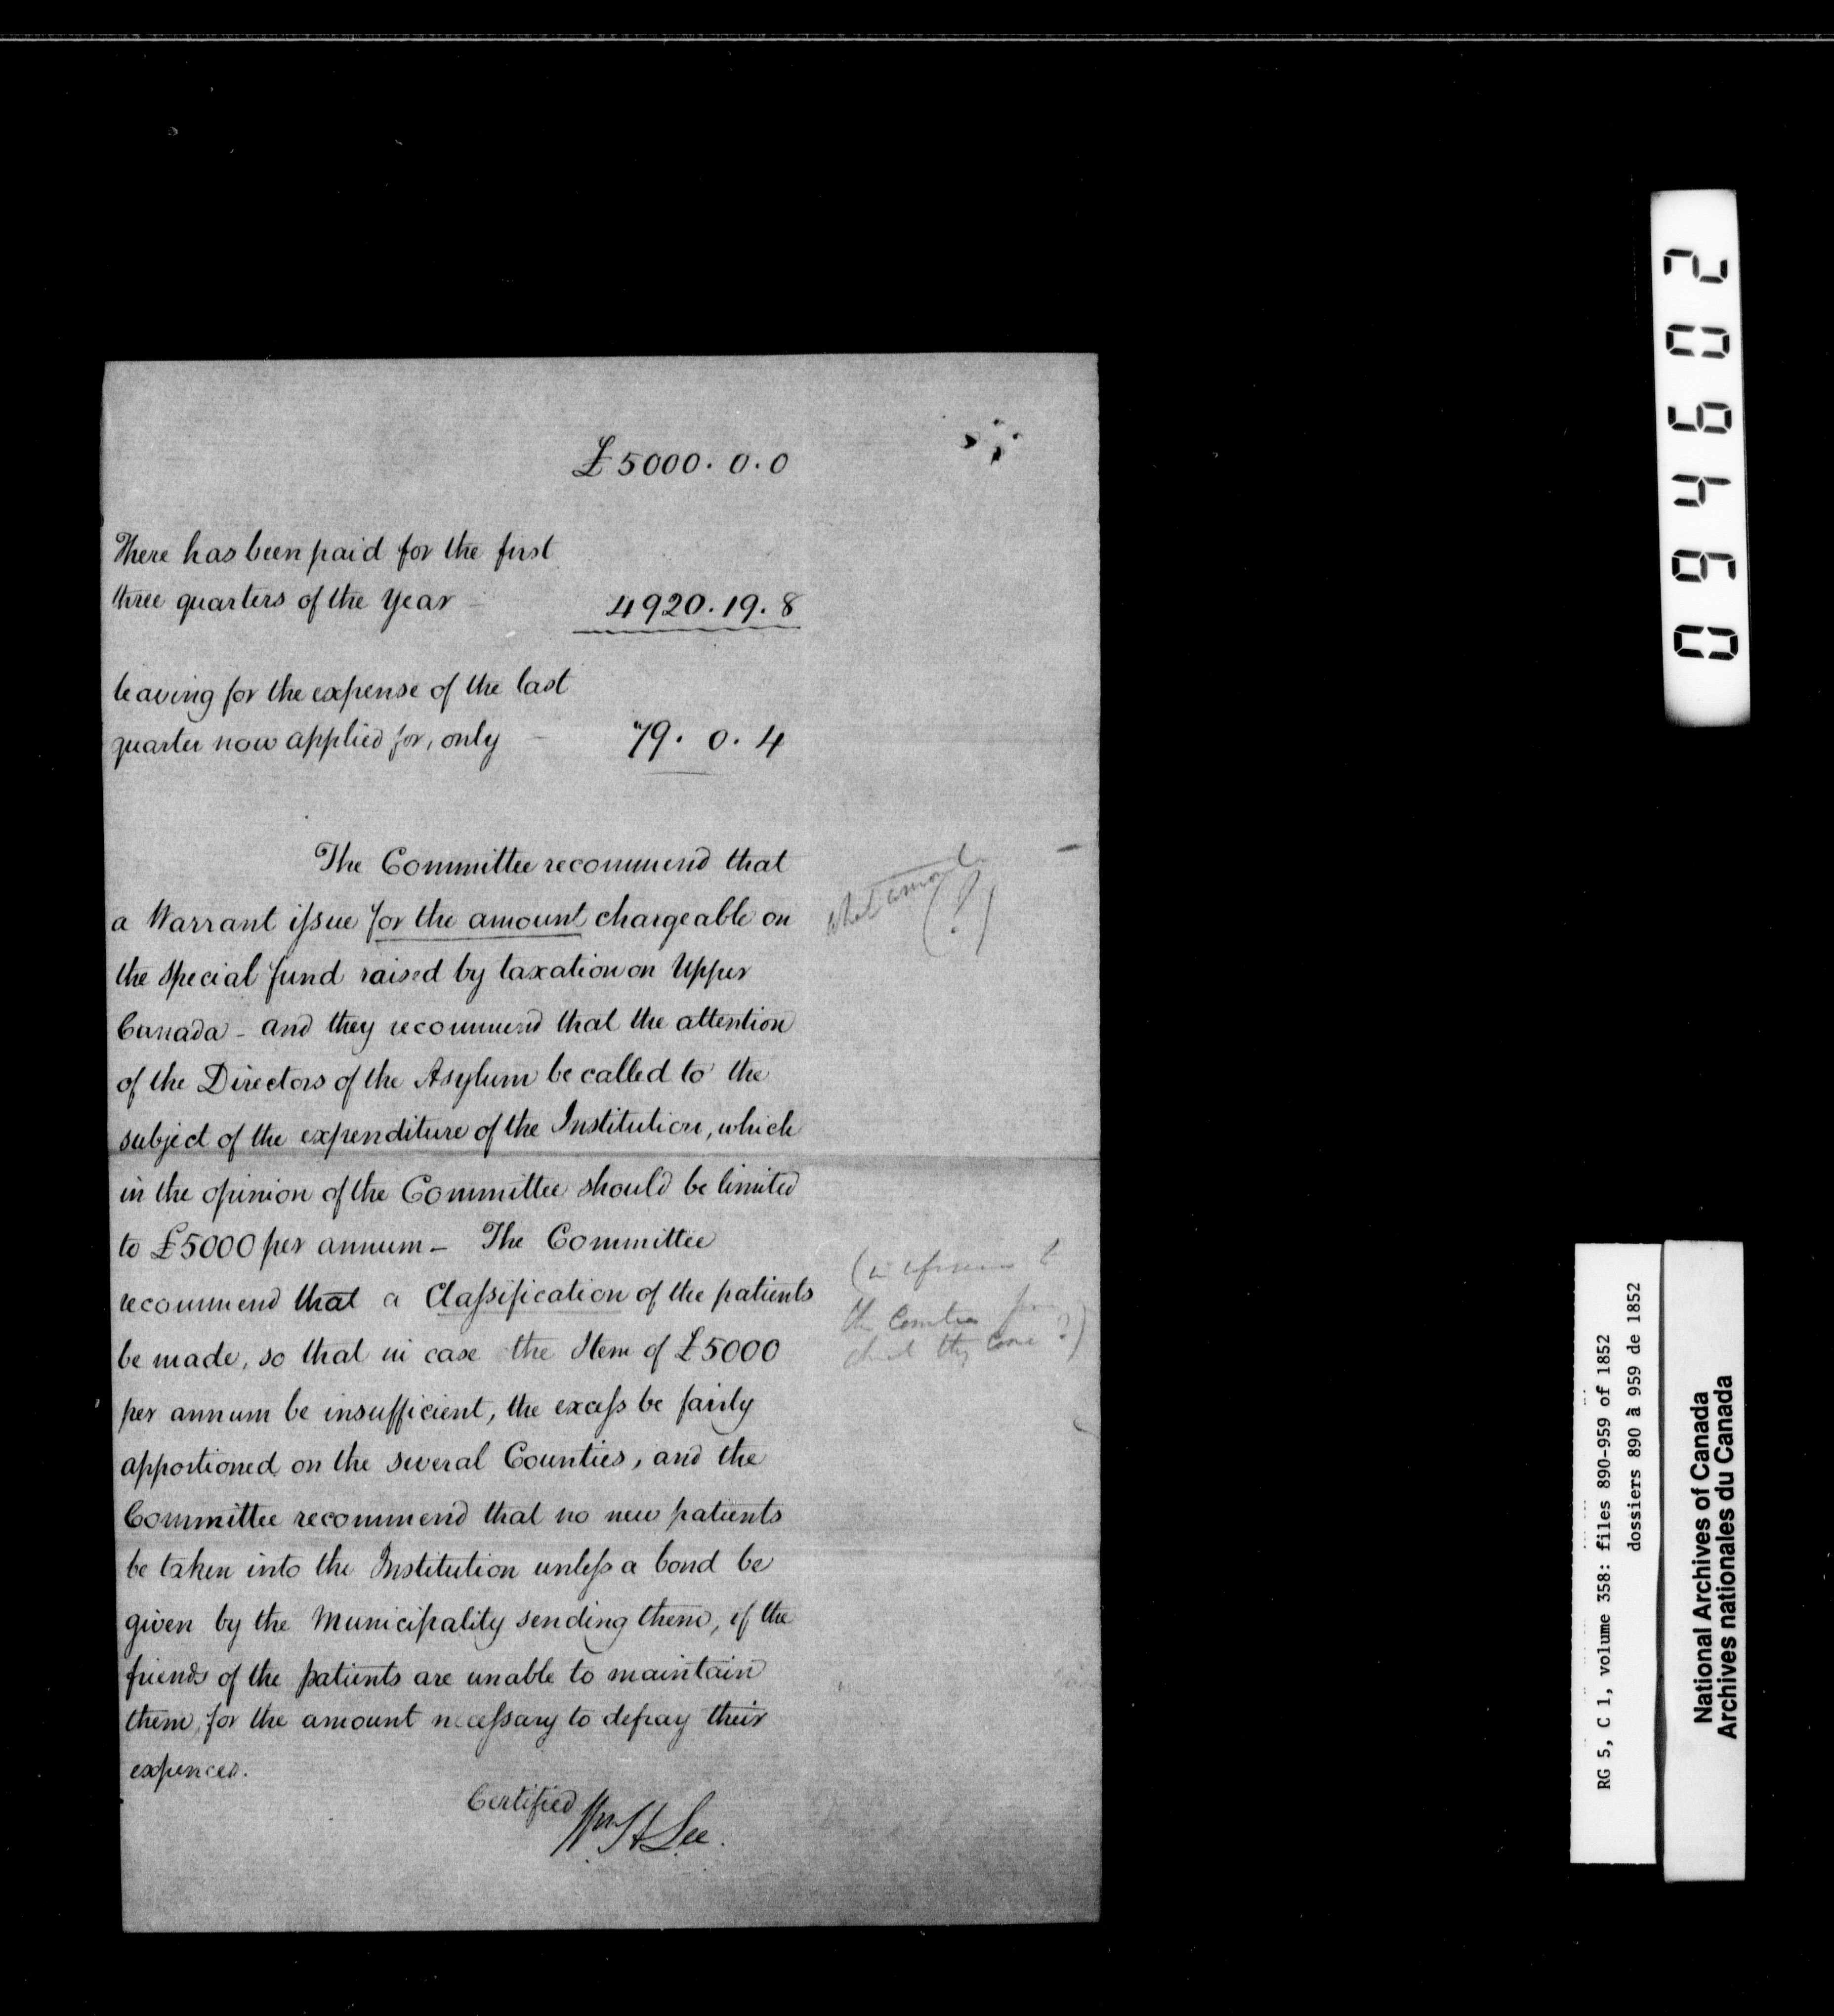 £5000. 0. 0
There has been paid for the first
three quarters of the Year
4920. 19. 8
leaving for the expense of the last
quarter now applied for, only
79. 0. 4
The Committee recommend that
a Warrant issue for the amount chargeable on
the special fund raised by taxation on Upper
Canada - and they recommend that the attention
of the Directors of the Asylum be called to the
subject of the expenditure of the Institution, which
in the opinion of the Committee should be limited
to £5000 per annum - The Committee
recommend that a Classification of the patients
be made, so that in case the Item of £5000
per annum be insufficient, the excess be fairly
apportioned on the several Counties, and the
Committee recommend that no new patients
be taken into the Institution unless a bond be
given by the Municipality sending them, if the
friends of the patients are unable to maintain
them, for the amount necessary to defray their
expences.
Certified
Wm H Lee.
what amount
(?)
(in reference to
the Counties from
which they come ?)
094602
RG 5, C 1, volume 358: files 890-959 of 1852
dossiers 890 à 959 de 1852
National Archives of Canada
Archives nationales du Canada